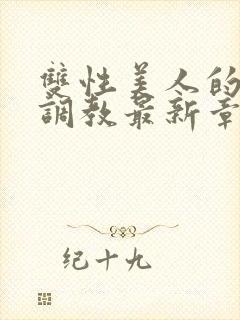 雙性美人的
調教最新章
纪十九